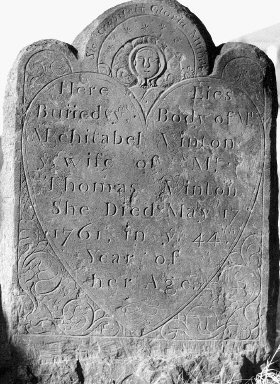 Here Lies
Buried yͤ Body of Mrs
Mehitabel Vinton
Wife of Mr
Thomas Vinton
She Died May 17
1761, in yͤ 44
Year of
her Age